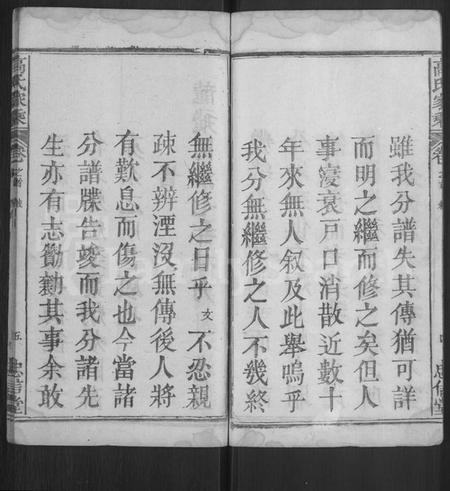 高氏家乘
雖我分譜失其傳猶可詳
而明之繼而修之矣但人
事寖衰戸口消散近數十
年來無人叙及此舉嗚乎
我分無繼修之人不㡬終
無繼修之日乎 文 不忍親
疎不辨湮没無傳後人將
有歎息而傷之也今當諸
分譜牒告竣而我分諸先
生亦有志勷勷其事余敢
高氏家乘
卷之首
五
忠信堂